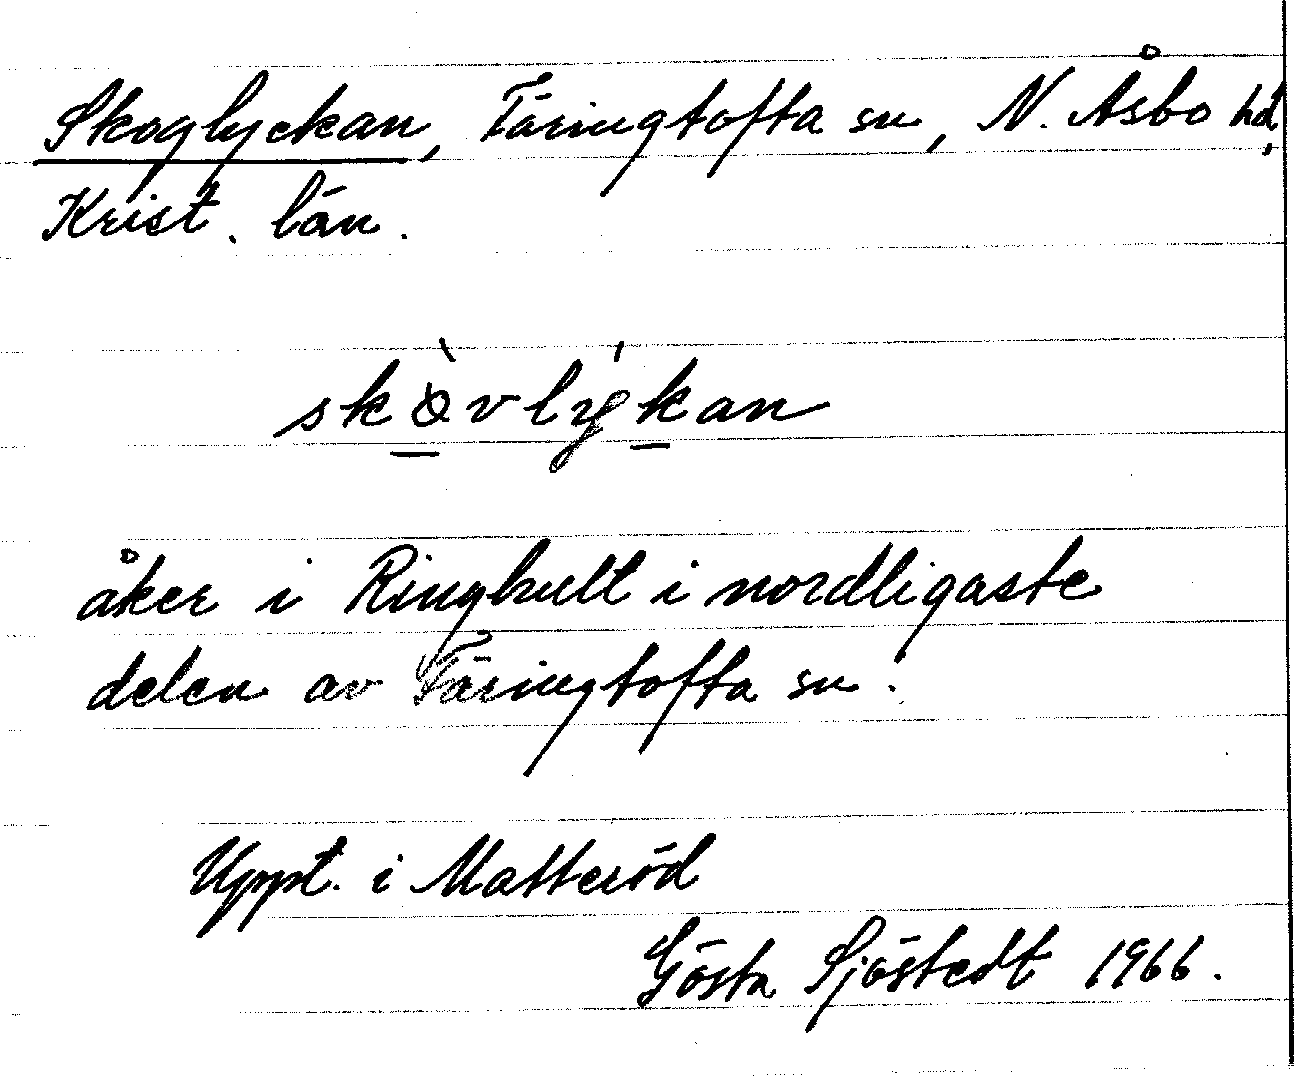 Skoglyckan, Färingtofta sn, N. Åsbo hd,
Krist. län.
skòvlýkan
åker i Ringhult i nordligaste
delen av Färingtofta sn.
Uppt. i Matteröd
Gösta Sjöstedt 1966.